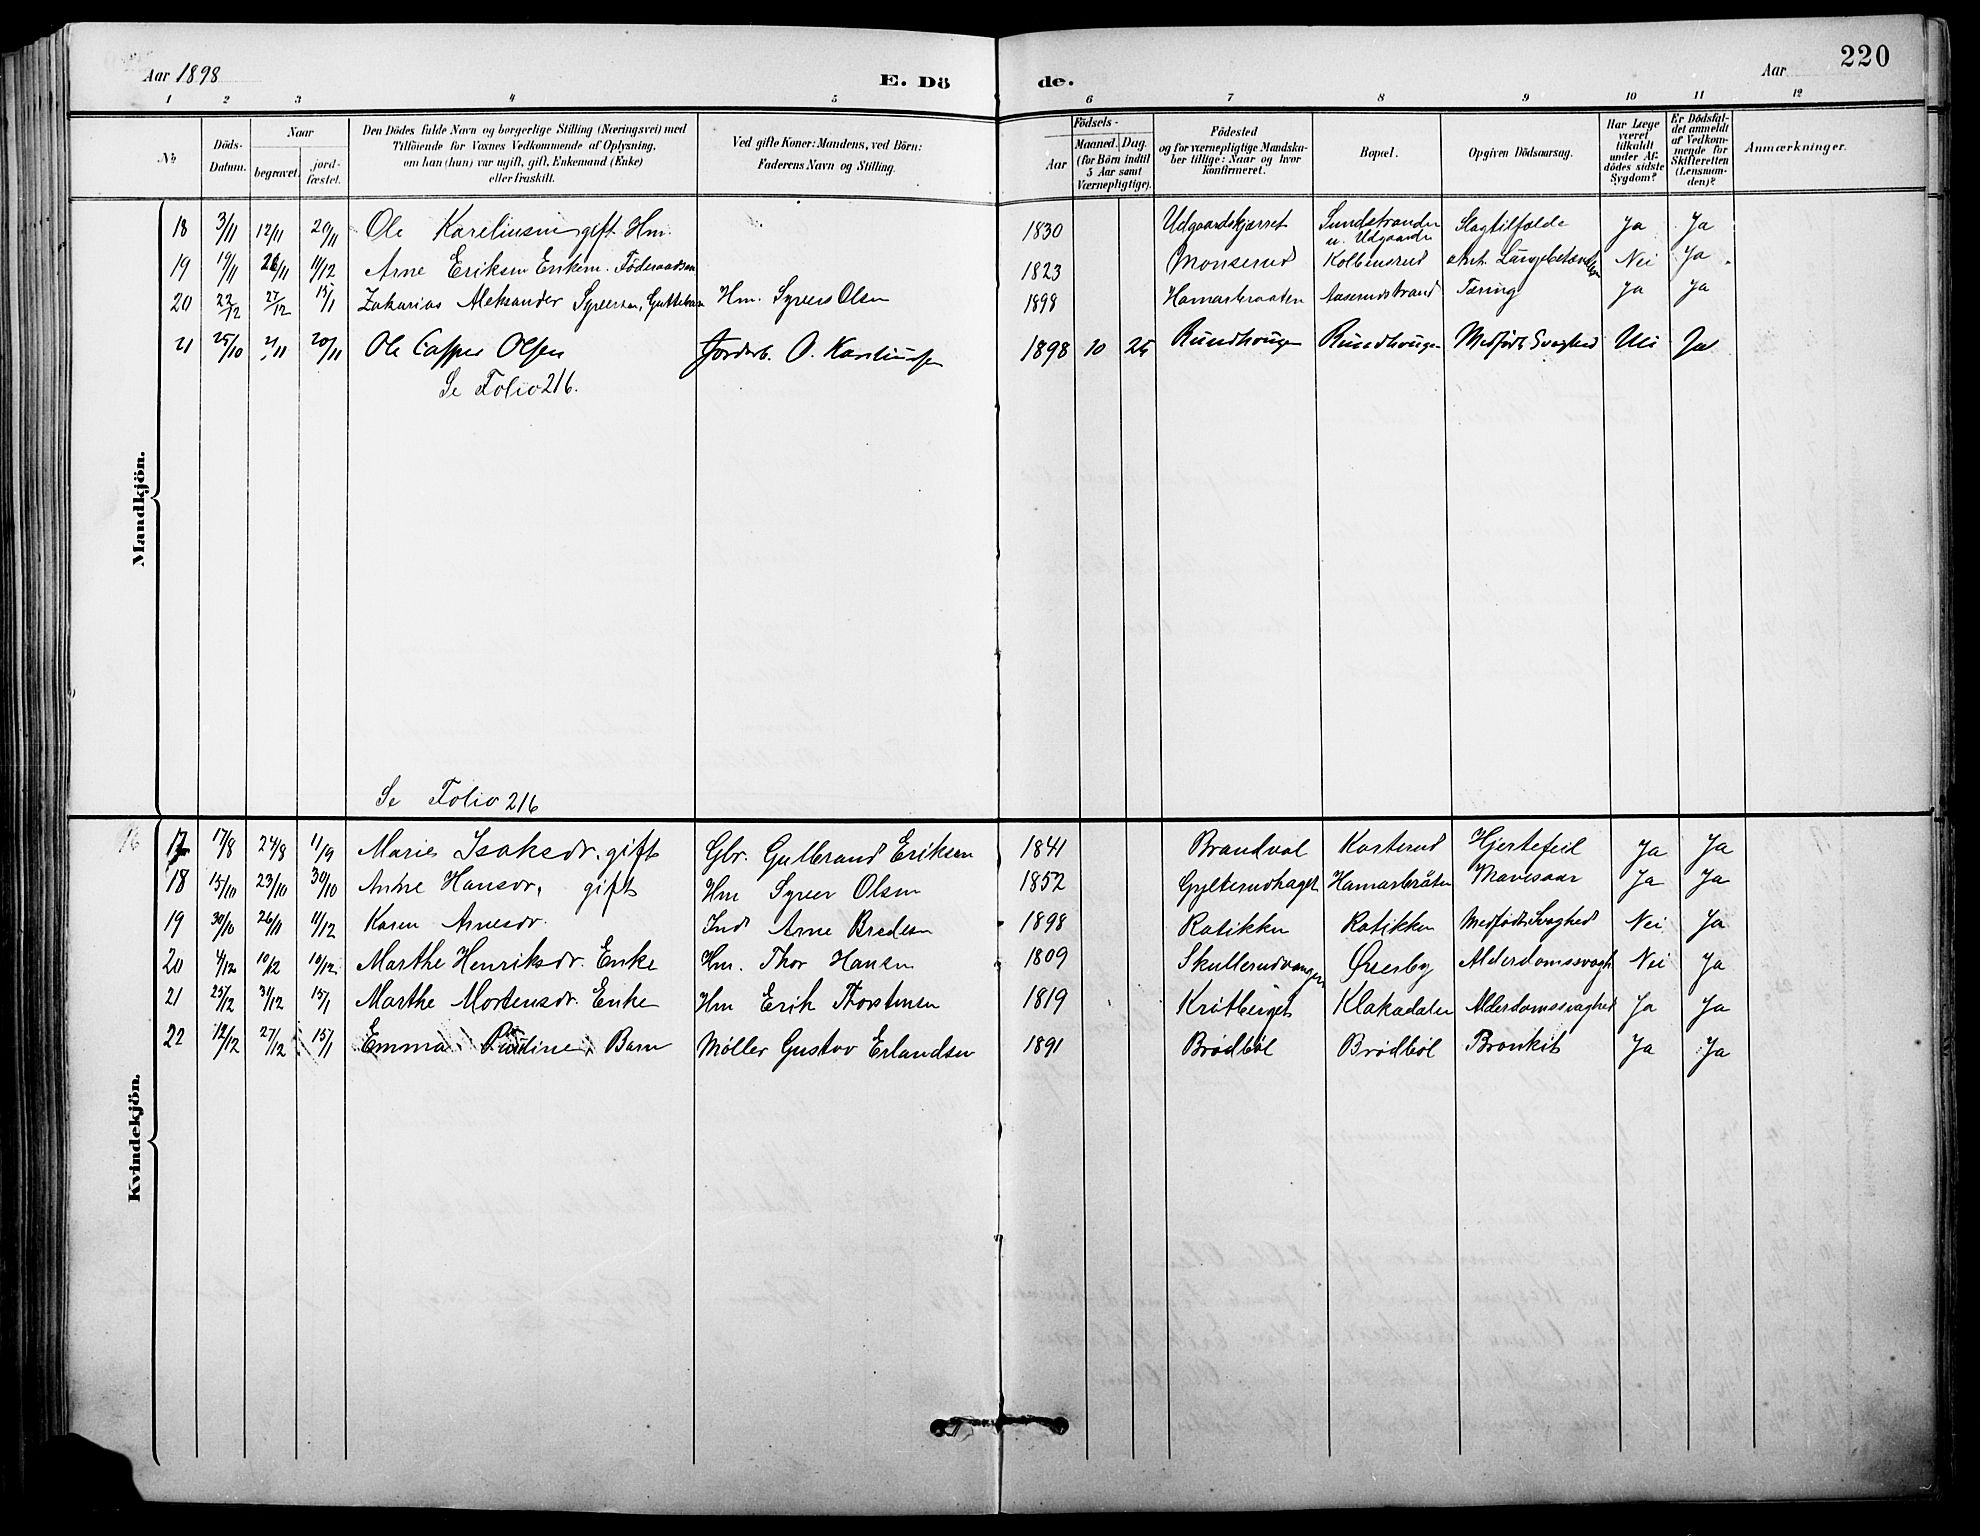 Aar 1898
E. Dö
de.
Aar
220
1 2 3 4 5 6 7 8 9 10 11 12
No
Döds-
Datum.
Naar
begravet.
jord-
fæstet.
Den Dödes fulde Navn og borgerlige Stilling (Næringsvei) med
Tilföiende for Voxnes Vedkommende af Oplysning,
om han (hun) var ugift, gift, Enkemand (Enke)
eller fraskilt.
Ved gifte Koner: Mandens, ved Börn:
Faderens Navn og Stilling.
Födsels-
Aar
Maaned.
Dag.
(for Börn indtil
5 Aar samt
Værnepligtige).
Födested
og for værnepligtige Mandska-
ber tillige: Naar og hvor
konfirmeret.
Bopæl.
Opgiven Dödsaarsag.
Har Læge
været
tilkaldt
under Af-
dödes sidste
Sygdom?
Er Dödsfal-
det anmeldt
af Vedkom-
mende for
Skifteretten
(Lensman-
den)?
Anmærkninger.
Mandkjön.
18 3/11 12/11 20/11 Ole Kareliusen gift Hm. 1830 Udgaardskjærret Sundstranden u. Udgaarden Slagtilfælde Ja Ja
19 19/11 26/11 11/12 Arne Eriksen Enkem. Föderaadsm 1823 Monserud Kolbensrud Nei Ja
20 22/12 27/12 15/1 Zakarias Aleksander Syversen, Guttebarn Hm. Syver Olsen 1898 Hamarbraaten Aaserudstrand Tæring Ja Ja
21 25/10 /11 20/11 Ole Casper Olsen Jordarb. O. Karelinssen 1898 10 25 Rundhaugen Rundhaugen Medfødt Svaghed Nei Ja
Se Folio 216.
Se Folio 216
Kvindekjön.
16 17 17/8 24/8 11/9 Marie Isaksdr. gift Gbr. Gulbrand Eriksen 1841 Brandval Kasterud Hjertefeil Ja Ja
18 15/10 23/10 30/10 Anne Hansdr. gift Hm Syver Olsen 1852 Gylterudhaget Hamarbråten Mavesaar Ja Ja
19 30/10 26/11 11/12 Karen Arnesdr. Ind Arne Bredesen 1898 Ratikken Ratikken Medfødt Svaghed Nei Ja
20 4/12 10/12 10/12 Marthe Henriksdr. Enke Hm. Thor Hansen 1809 Skullerudvangen Øverby Alderdomssvagh Nei Ja
21 25/12 31/12 15/1 Marthe Mortensdr. Enke Hm Erik Thorstensen 1819 Krøtberget Klakadalen Alderdomssvaghed Ja Ja
22 12/12 27/12 15/1 Emma Pautine, Barn Møller Gustav Erlandsen 1891 Brødbøl Brødbøl Bronkit Ja Ja